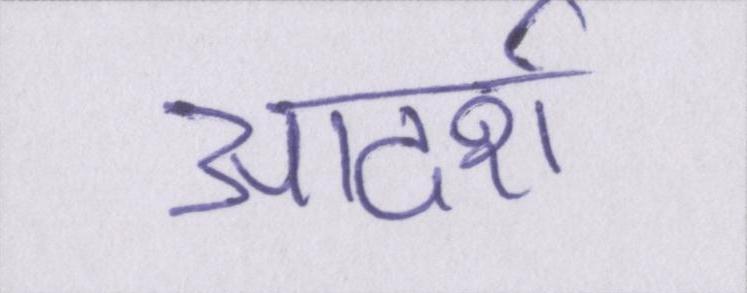 आदर्श